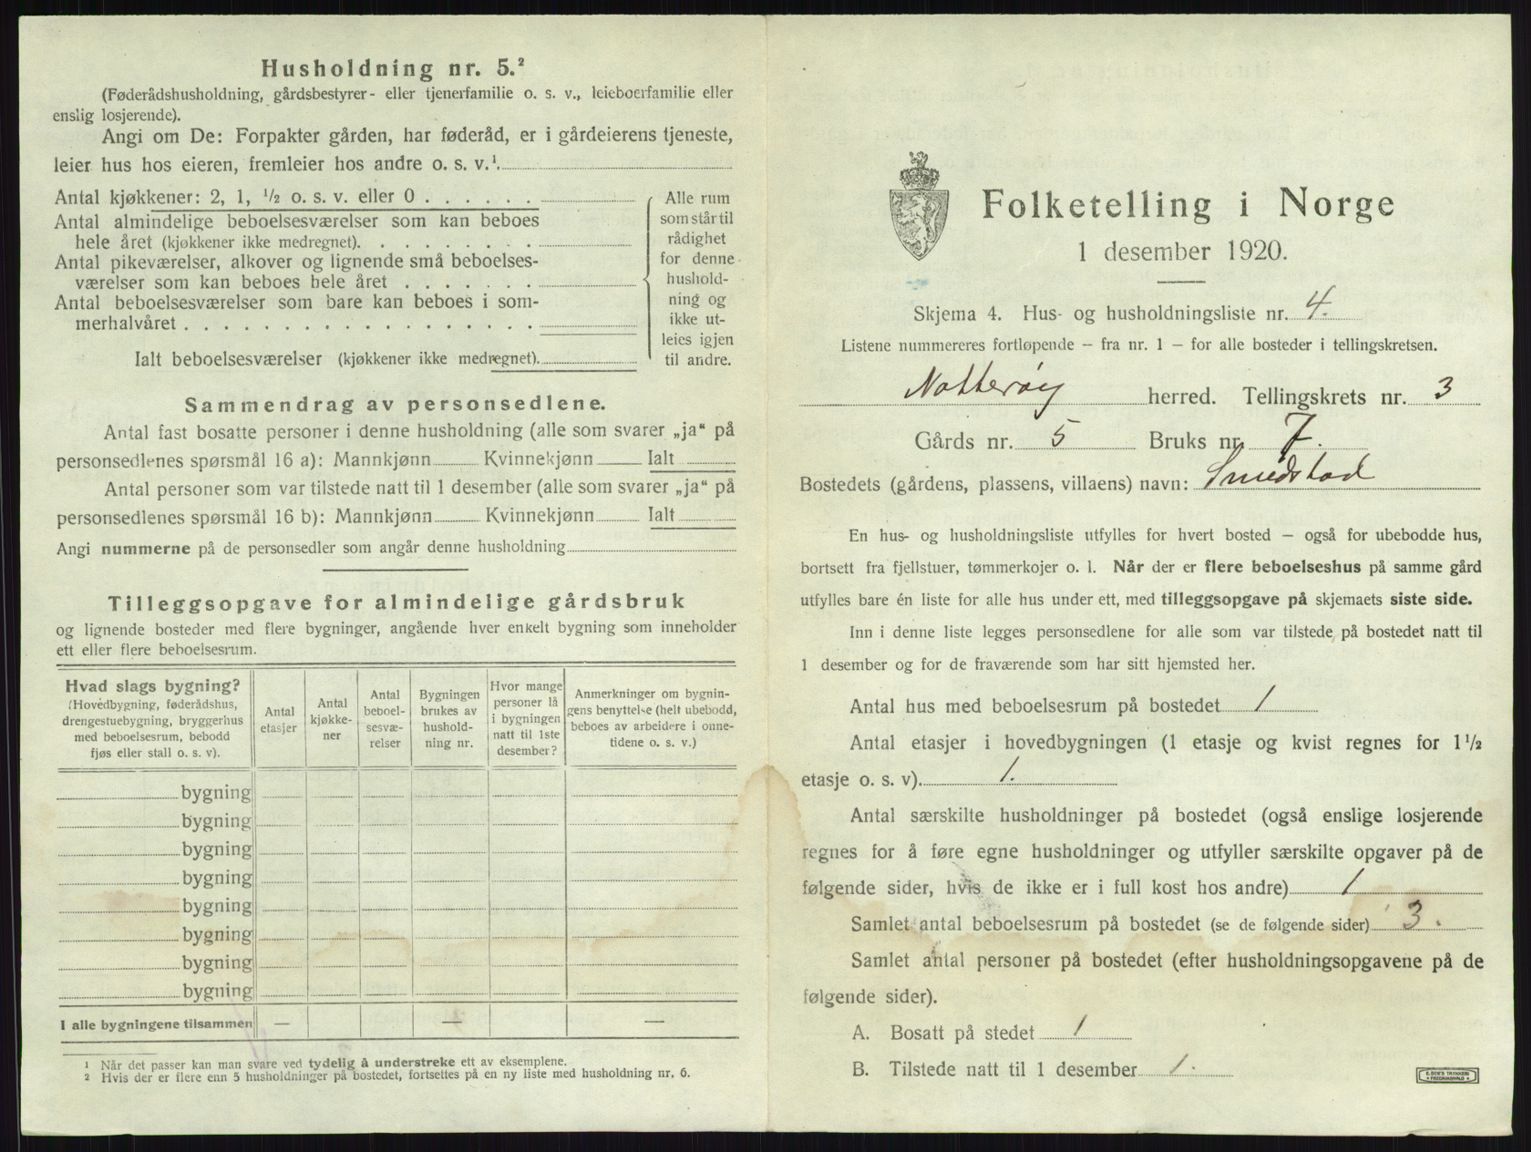 Husholdning nr. 5.²
(Føderådshusholdning, gårdsbestyrer- eller tjenerfamilie o. s. v., leieboerfamilie eller
enslig losjerende).
Angi om De: Forpakter gården, har føderåd, er i gårdeierens tjeneste,
leier hus hos eieren, fremleier hos andre o. s. v.¹
Antal kjøkkener: 2, 1, ½ o. s. v. eller 0
Antal almindelige beboelsesværelser som kan beboes
hele året (kjøkkener ikke medregnet).
Antal pikeværelser, alkover og lignende små beboelses-
værelser som kan beboes hele året
Antal beboelsesværelser som bare kan beboes i som-
merhalvåret
Ialt beboelsesværelser (kjøkkener ikke medregnet).
Alle rum
som står til
rådighet
for denne
hushold-
ning og
ikke ut-
leies igjen
til andre.
Sammendrag av personsedlene.
Antal fast bosatte personer i denne husholdning (alle som svarer „ja“ på
personsedlenes spørsmål 16 a): Mannkjønn Kvinnekjønn Ialt
Antal personer som var tilstede natt til 1 desember (alle som svarer „ja“ på
personsedlenes spørsmål 16 b): Mannkjønn Kvinnekjønn Ialt
Angi nummerne på de personsedler som angår denne husholdning
Tilleggsopgave for almindelige gårdsbruk
og lignende bosteder med flere bygninger, angående hver enkelt bygning som inneholder
ett eller flere beboelsesrum.
Hvad slags bygning?
(Hovedbygning, føderådshus,
drengestuebygning, bryggerhus
med beboelsesrum, bebodd
fjøs eller stall o. s. v).
Antal
etasjer
Antal
kjøkke-
ner
Antal
beboel-
sesvæ-
relser
Bygningen
brukes av
hushold-
ning nr.
Hvor mange
personer lå
i bygningen
natt til 1ste
desember?
Anmerkninger om bygnin-
gens benyttelse (helt ubebodd,
beboes av arbeidere i onne-
tidene o. s. v.)
bygning
bygning
bygning
bygning
bygning
bygning
bygning
bygning
I alle bygningene tilsammen — — —
¹ Når det passer kan man svare ved tydelig å understreke ett av eksemplene.
² Hvis der er flere enn 5 husholdninger på bostedet, fortsettes på en ny liste med husholdning nr. 6.
Folketelling i Norge
1 desember 1920.
Skjema 4. Hus- og husholdningsliste nr. 4.
Listene nummereres fortløpende – fra nr. 1 – for alle bosteder i tellingskretsen.
Nøtterøy herred. Tellingskrets nr. 3
Gårds nr. 5 Bruks nr. 7.
Bostedets (gårdens, plassens, villaens) navn: Smidstad
En hus- og husholdningsliste utfylles for hvert bosted – også for ubebodde hus,
bortsett fra fjellstuer, tømmerkojer o. l. Når der er flere beboelseshus på samme gård
utfylles bare én liste for alle hus under ett, med tilleggsopgave på skjemaets siste side.
Inn i denne liste legges personsedlene for alle som var tilstede på bostedet natt til
1 desember og for de fraværende som har sitt hjemsted her.
Antal hus med beboelsesrum på bostedet 1
Antal etasjer i hovedbygningen (1 etasje og kvist regnes for 1½
etasje o. s. v). 1.
Antal særskilte husholdninger på bostedet (også enslige losjerende
regnes for å føre egne husholdninger og utfyller særskilte opgaver på de
følgende sider, hvis de ikke er i full kost hos andre) 1
Samlet antal beboelsesrum på bostedet (se de følgende sider) 3.
Samlet antal personer på bostedet (efter husholdningsopgavene på de
følgende sider).
A. Bosatt på stedet 1
B. Tilstede natt til 1 desember 1.